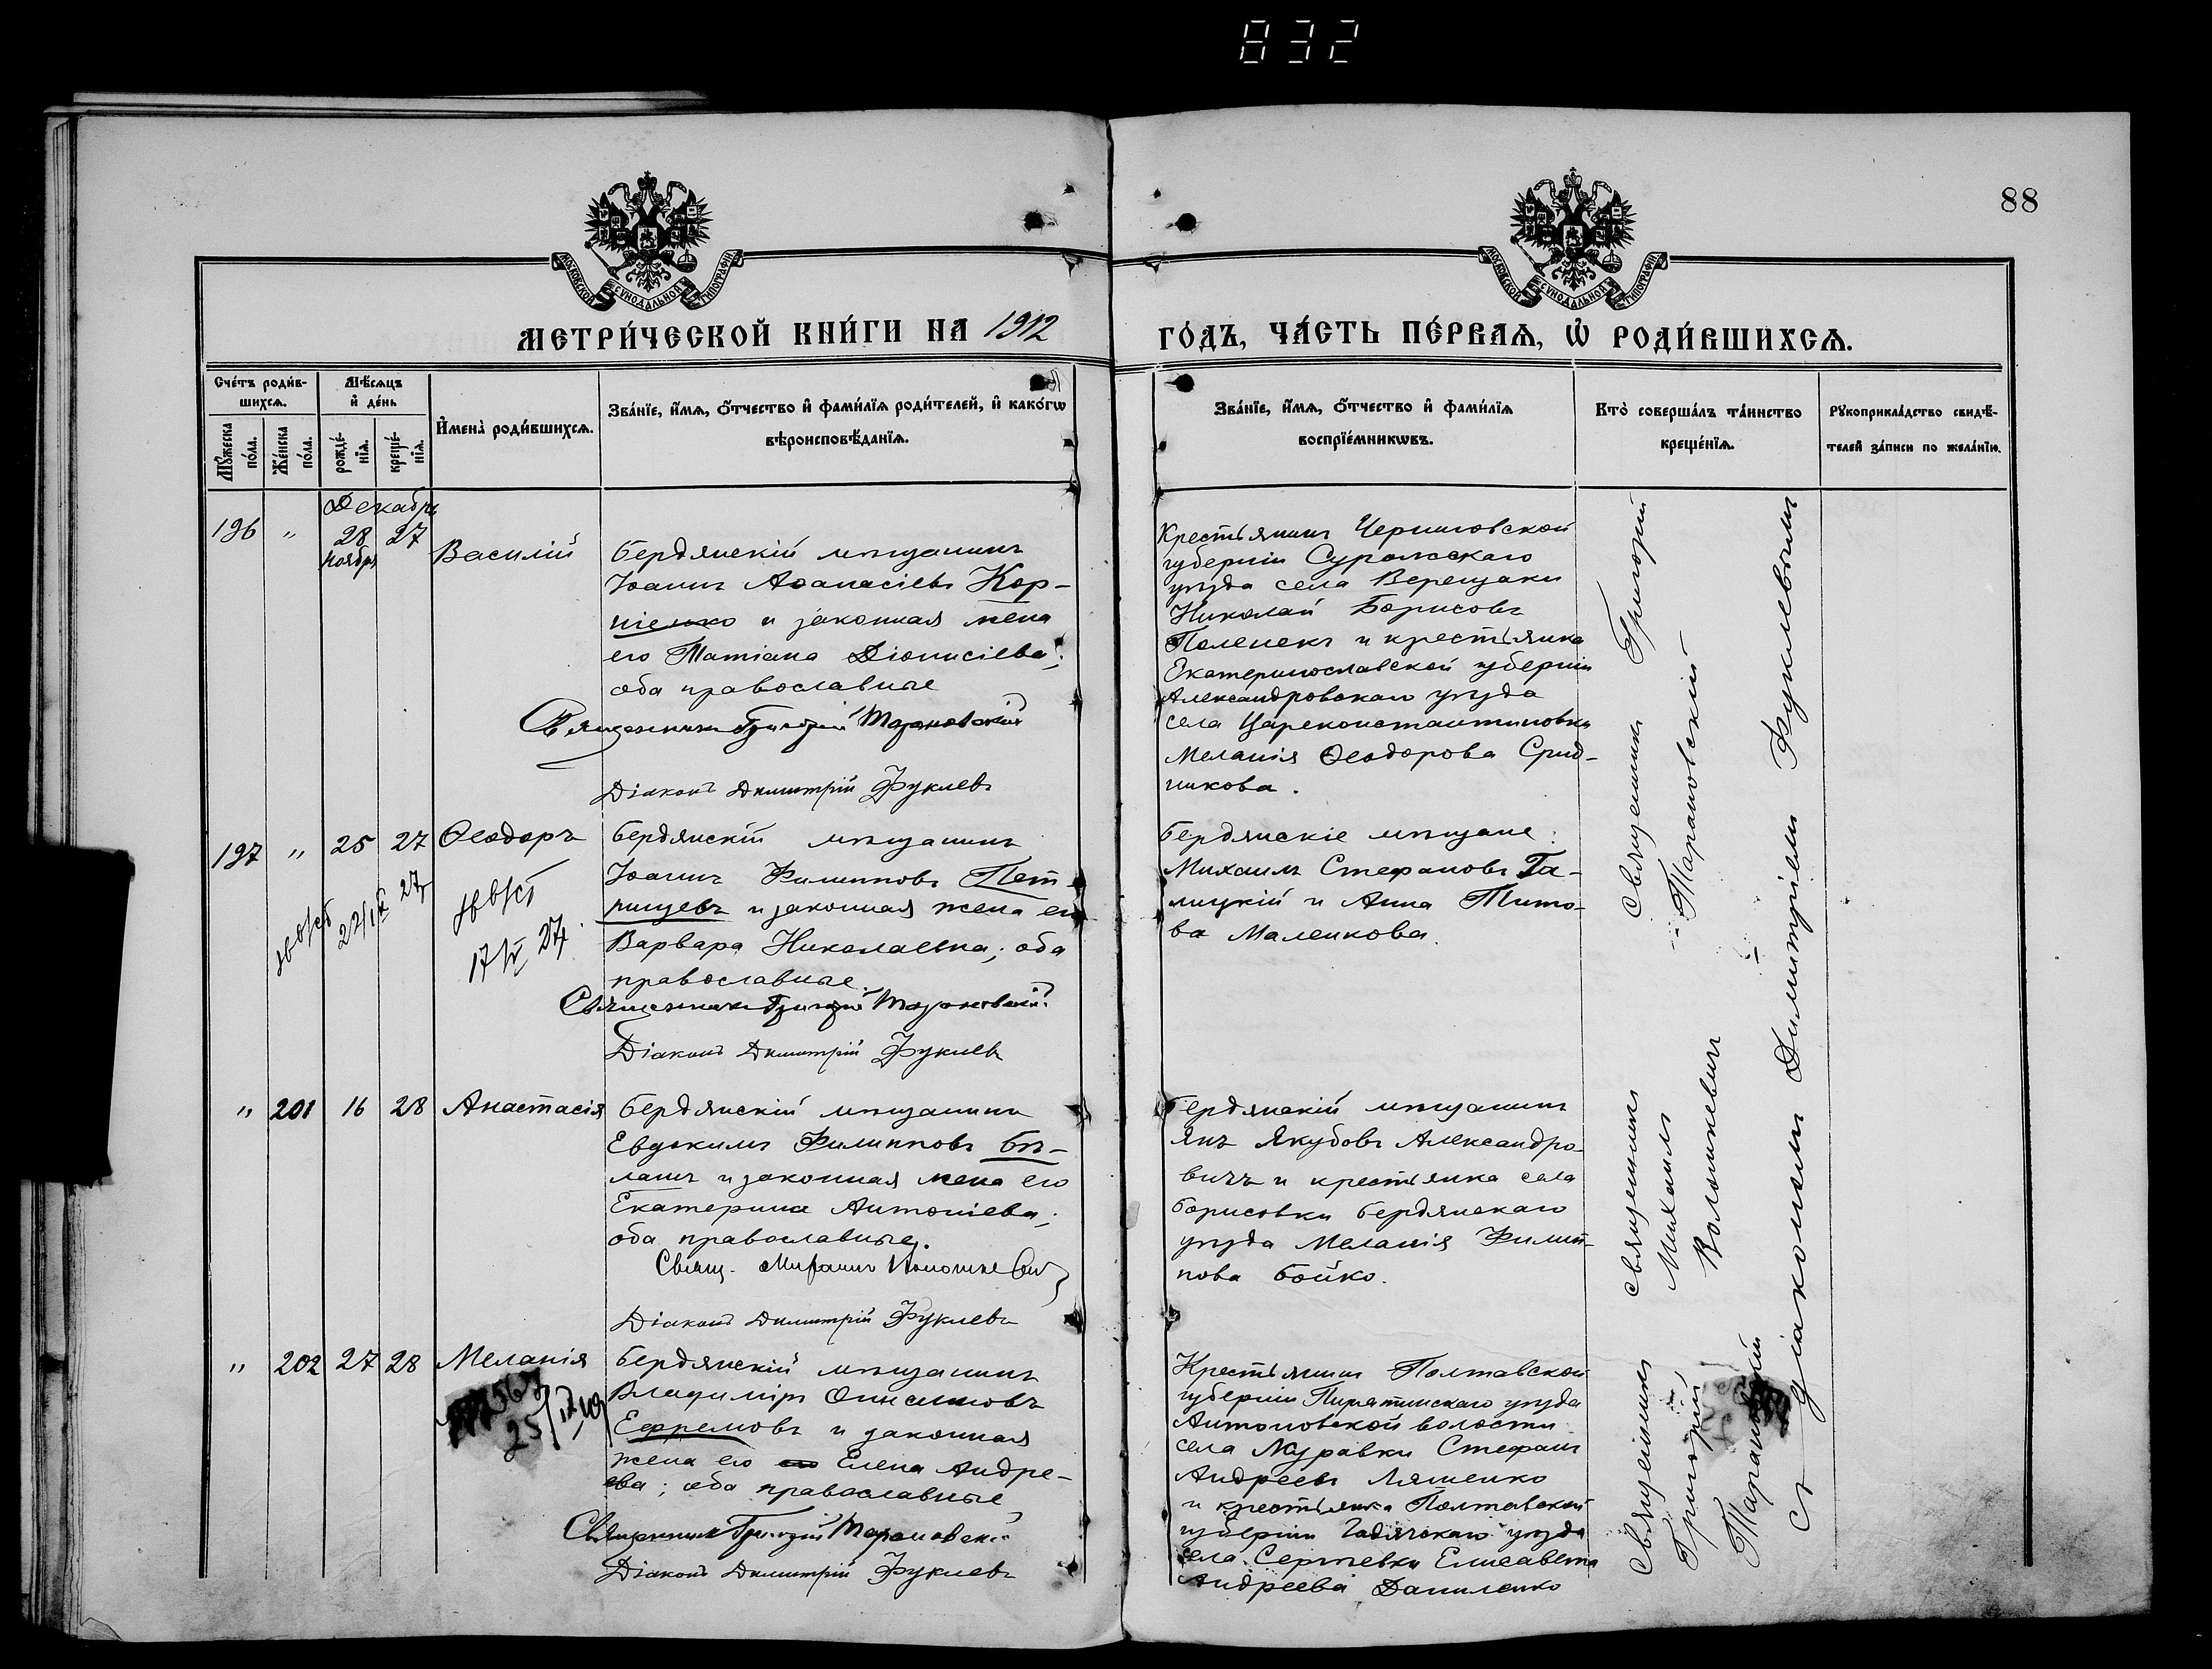 832
88
МОСКОВСКОЙ СѴНОДАЛЬНОЙ ТИПОГРАФІИ
МОСКОВСКОЙ СѴНОДАЛЬНОЙ ТИПОГРАФІИ
МЕТРИ́ЧЕСКОЙ КНИ́ГИ НА 1912
ГО́ДЪ, ЧА́СТЬ ПЕ́РВАѦ, Ѡ҆ РОДИ́ВШИХСѦ.
Сче́тъ роди́в-
шихсѧ.
Мѣ́сѧцъ
и҆ де́нь
Мꙋ́жеска
по́ла.
Же́нска
по́ла.
рожде́-
нїѧ.
креще́-
нїѧ.
И҆мена̀ роди́вшихсѧ.
Зва́нїе, и҆́мѧ, ѻ҆́тчество и҆ фами́лїѧ роди́телей, и҆ како́гѡ
вѣроисповѣ́данїѧ.
Зва́нїе, и҆́мѧ, ѻ҆́тчество и҆ фами́лїѧ
воспрїе́мникѡвъ.
Кто̀ соверша́лъ та́инство
креще́нїѧ.
Рꙋкоприкла́дство свидѣ́-
телей за́писи по жела́нїю.
Декабрь
196 " 28 27
Ноября
Василій
Бердянскій мѣщанинъ
Іоаннъ Аѳанасіевъ Кор-
ніенко и законная жена
его Татіана Діонисіева;
оба православные
Священникъ Григорій Тарановскій
Діаконъ Димитрій Фуклевъ
Крестьянинъ Черниговской
губерніи Суражскаго
уѣзда села Верещаки
Николай Борисовъ
Поленокъ и крестьянка
Екатеринославской губерніи
Александровскаго уѣзда
села Цареконстантиновки
Меланія Ѳеодорова Срид-
никова.
197 " 25 27 Ѳеодоръ
22/IX 27
17/IV 27
Бердянскій мѣщанинъ
Іоаннъ Филипповъ Пет-
рищевъ и законная жена его
Варвара Николаевна; оба
православные.
Священникъ Григорій Тарановскій
Діаконъ Димитрій Фуклевъ
Бердянскіе мѣщане:
Михаилъ Стефановъ Га-
лицкій и Анна Тито-
ва Маленкова.
Священникъ Григорій
Тарановскій
" 201 16 28 Анастасія
Бердянскій мѣщанинъ
Евдокимъ Филипповъ Бѣ-
ланъ и законная жена его
Екатерина Антоніева;
оба православные.
Свящ. Михаилъ Волошкевич
Діаконъ Димитрій Фуклевъ
Бердянскій мѣщанинъ
Янъ Якубовъ Александро-
вичъ и крестьянка села
Борисовки Бердянскаго
уѣзда Меланія Филип-
пова Бойко.
священникъ
Михаилъ
Волошкевичъ
" 202 27 28 Меланія
Бердянскій мѣщанинъ
Владиміръ Онисимовъ
Ефремовъ и законная
жена его Елена Андре-
ева; оба православные
Священникъ Григорій Тарановскій
Діаконъ Димитрій Фуклевъ
Крестьянинъ Полтавской
губерніи Пирятинскаго уѣзда
Антоновской волости
села Журавки Стефанъ
Андреевъ Ляшенко
и крестьянка Полтавской
губерніи Гадячскаго уѣзда
села Сергѣевки Елисавета
Андреева Даниленко
Священникъ
Григорій
Тарановскій
съ діакономъ Димитріемъ Фуклевымъ